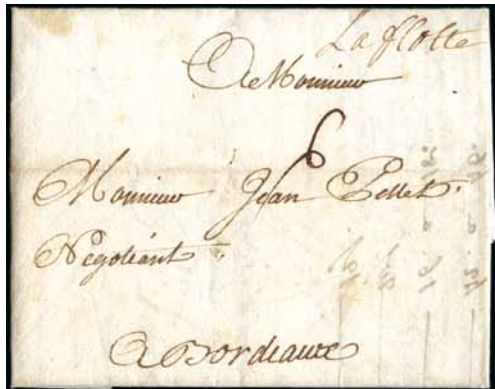 La flotte
A Monsieur
6
Monsieur Jean Pellet.
Négotiant.
A Bordeaux